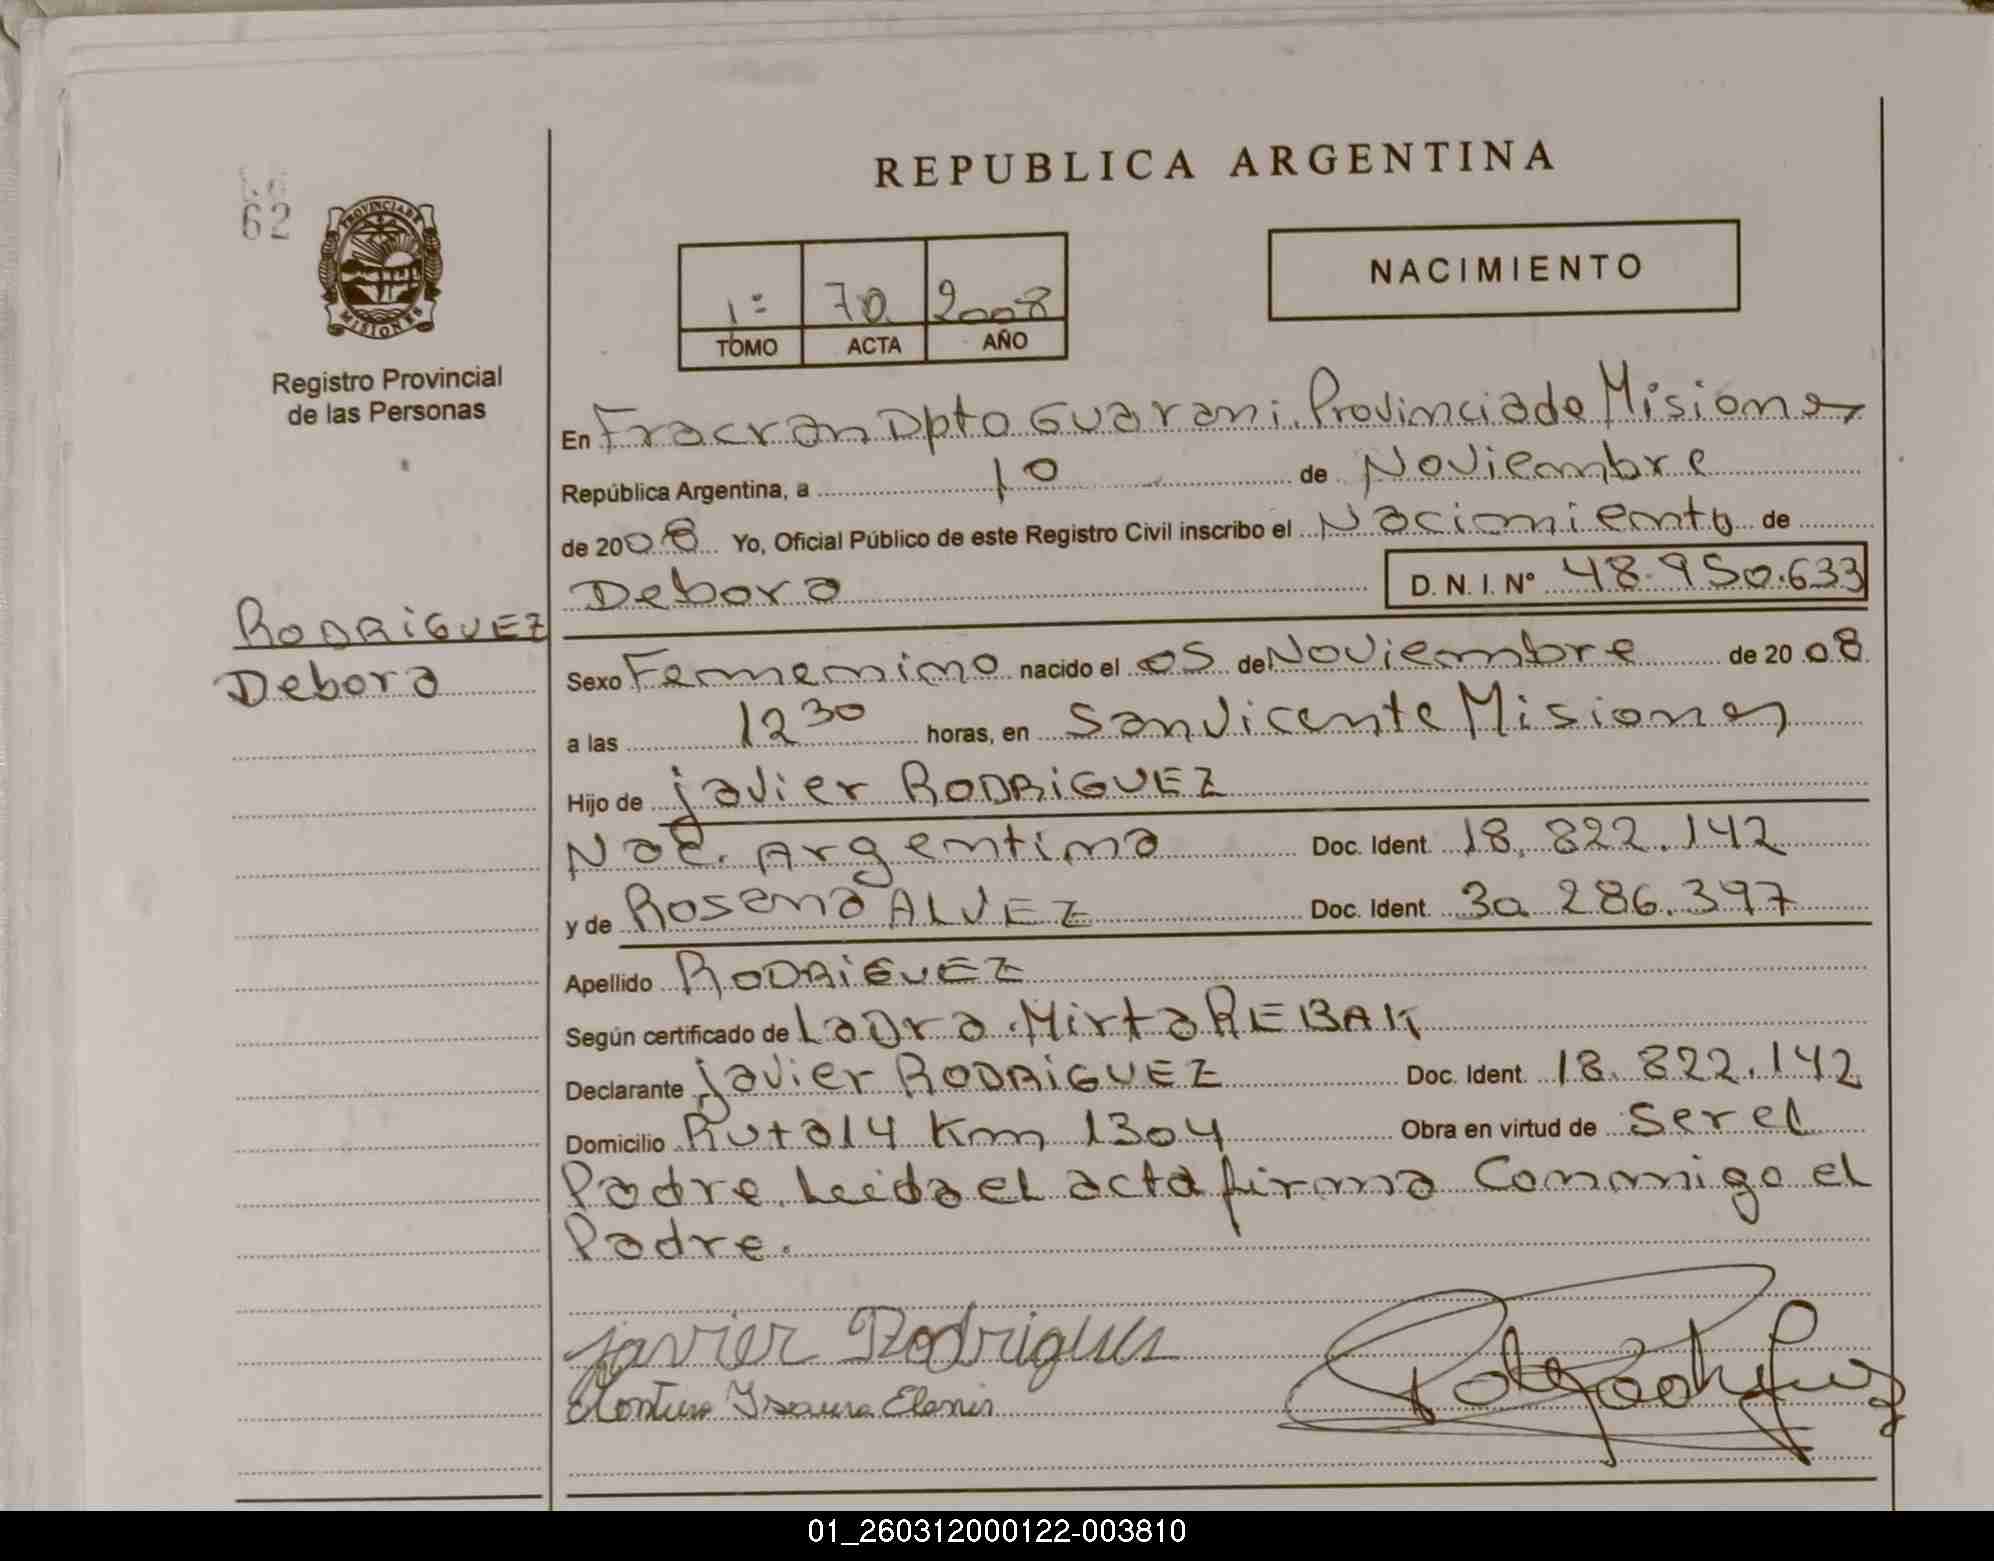 REPUBLICA ARGENTINA
62
PROVINCIA DE
MISIONES
Registro Provincial
de las Personas
1º 70 2008
TOMO ACTA AÑO
NACIMIENTO
En Fracran Dpto Guarani. Provincia de Misiones
República Argentina, a 10 de Noviembre
de 2008 Yo, Oficial Público de este Registro Civil inscribo el Nacimiento de
Debora D. N. I. Nº 48.950.633
RODRIGUEZ
Debora
Sexo Femenino nacido el 05 de Noviembre de 2008
a las 12 30 horas, en San Vicente Misiones
Hijo de Javier RODRIGUEZ
Nac. Argentina Doc. Ident. 18.822.142
y de Rosana ALVEZ Doc. Ident. 30 286.397
Apellido RODRIGUEZ
Según certificado de La Dra. Mirta REBAK
Declarante Javier RODRIGUEZ Doc. Ident. 18.822.142
Domicilio Ruta 14 Km 1304 Obra en virtud de ser el
Padre. Leida el acta firma Conmigo el
Padre.
Javier Rodrigues
Isaura
01_260312000122-003810